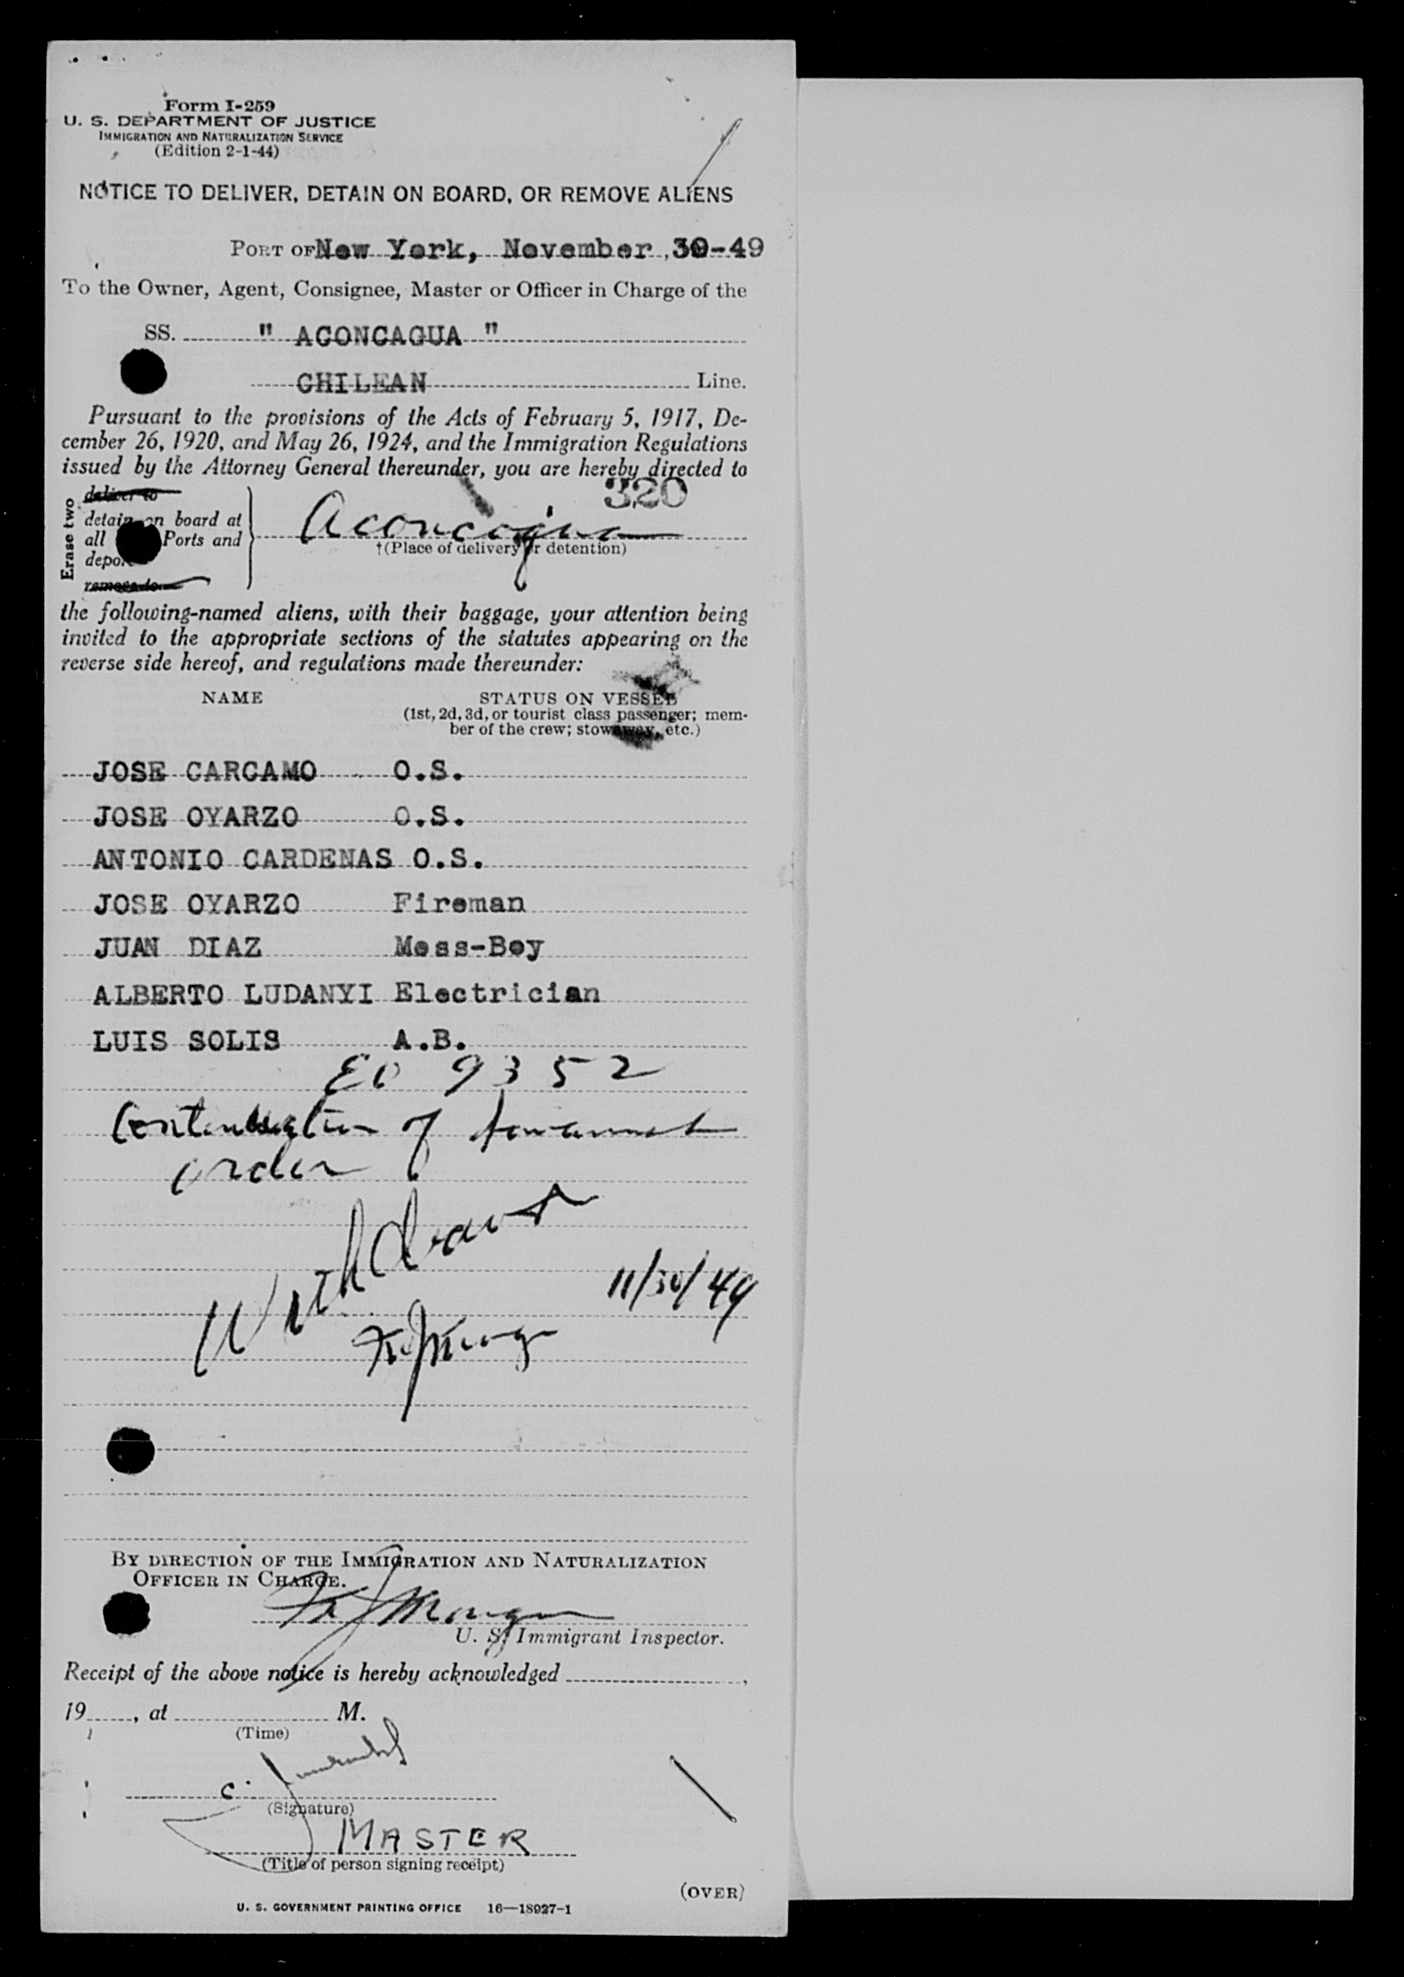 Form I-259
U. S. DEPARTMENT OF JUSTICE
IMMIGRATION AND NATURALIZATION SERVICE
(Edition 2-1-44)
NOTICE TO DELIVER, DETAIN ON BOARD, OR REMOVE ALIENS
PORT OF New York, November, 30-49
To the Owner, Agent, Consignee, Master or Officer in Charge of the
SS. " ACONCAGUA "
CHILEAN Line.
Pursuant to the provisions of the Acts of February 5, 1917, De-
cember 26, 1920, and May 26, 1924, and the Immigration Regulations
issued by the Attorney General thereunder, you are hereby directed to
320
Erase two
deliver to
detain on board at
all Ports and
deport
remove to
Aconcagua
†(Place of delivery or detention)
the following-named aliens, with their baggage, your attention being
invited to the appropriate sections of the statutes appearing on the
reverse side hereof, and regulations made thereunder:
NAME STATUS ON VESSEL
(1st, 2d, 3d, or tourist class passenger; mem-
ber of the crew; stowaway, etc.)
JOSE CARCAMO O.S.
JOSE OYARZO O.S.
ANTONIO CARDENAS O.S.
JOSE OYARZO Fireman
JUAN DIAZ Mess-Boy
ALBERTO LUDANYI Electrician
LUIS SOLIS A.B.
EO 9352
Continuation of
order
Withdrawn
11/30/49
BY DIRECTION OF THE IMMIGRATION AND NATURALIZATION
OFFICER IN CHARGE.
U. S. Immigrant Inspector.
Receipt of the above notice is hereby acknowledged ,
19 , at M.
(Time)
C.
(Signature)
MASTER
(Title of person signing receipt)
(OVER)
U. S. GOVERNMENT PRINTING OFFICE 16—18927-1